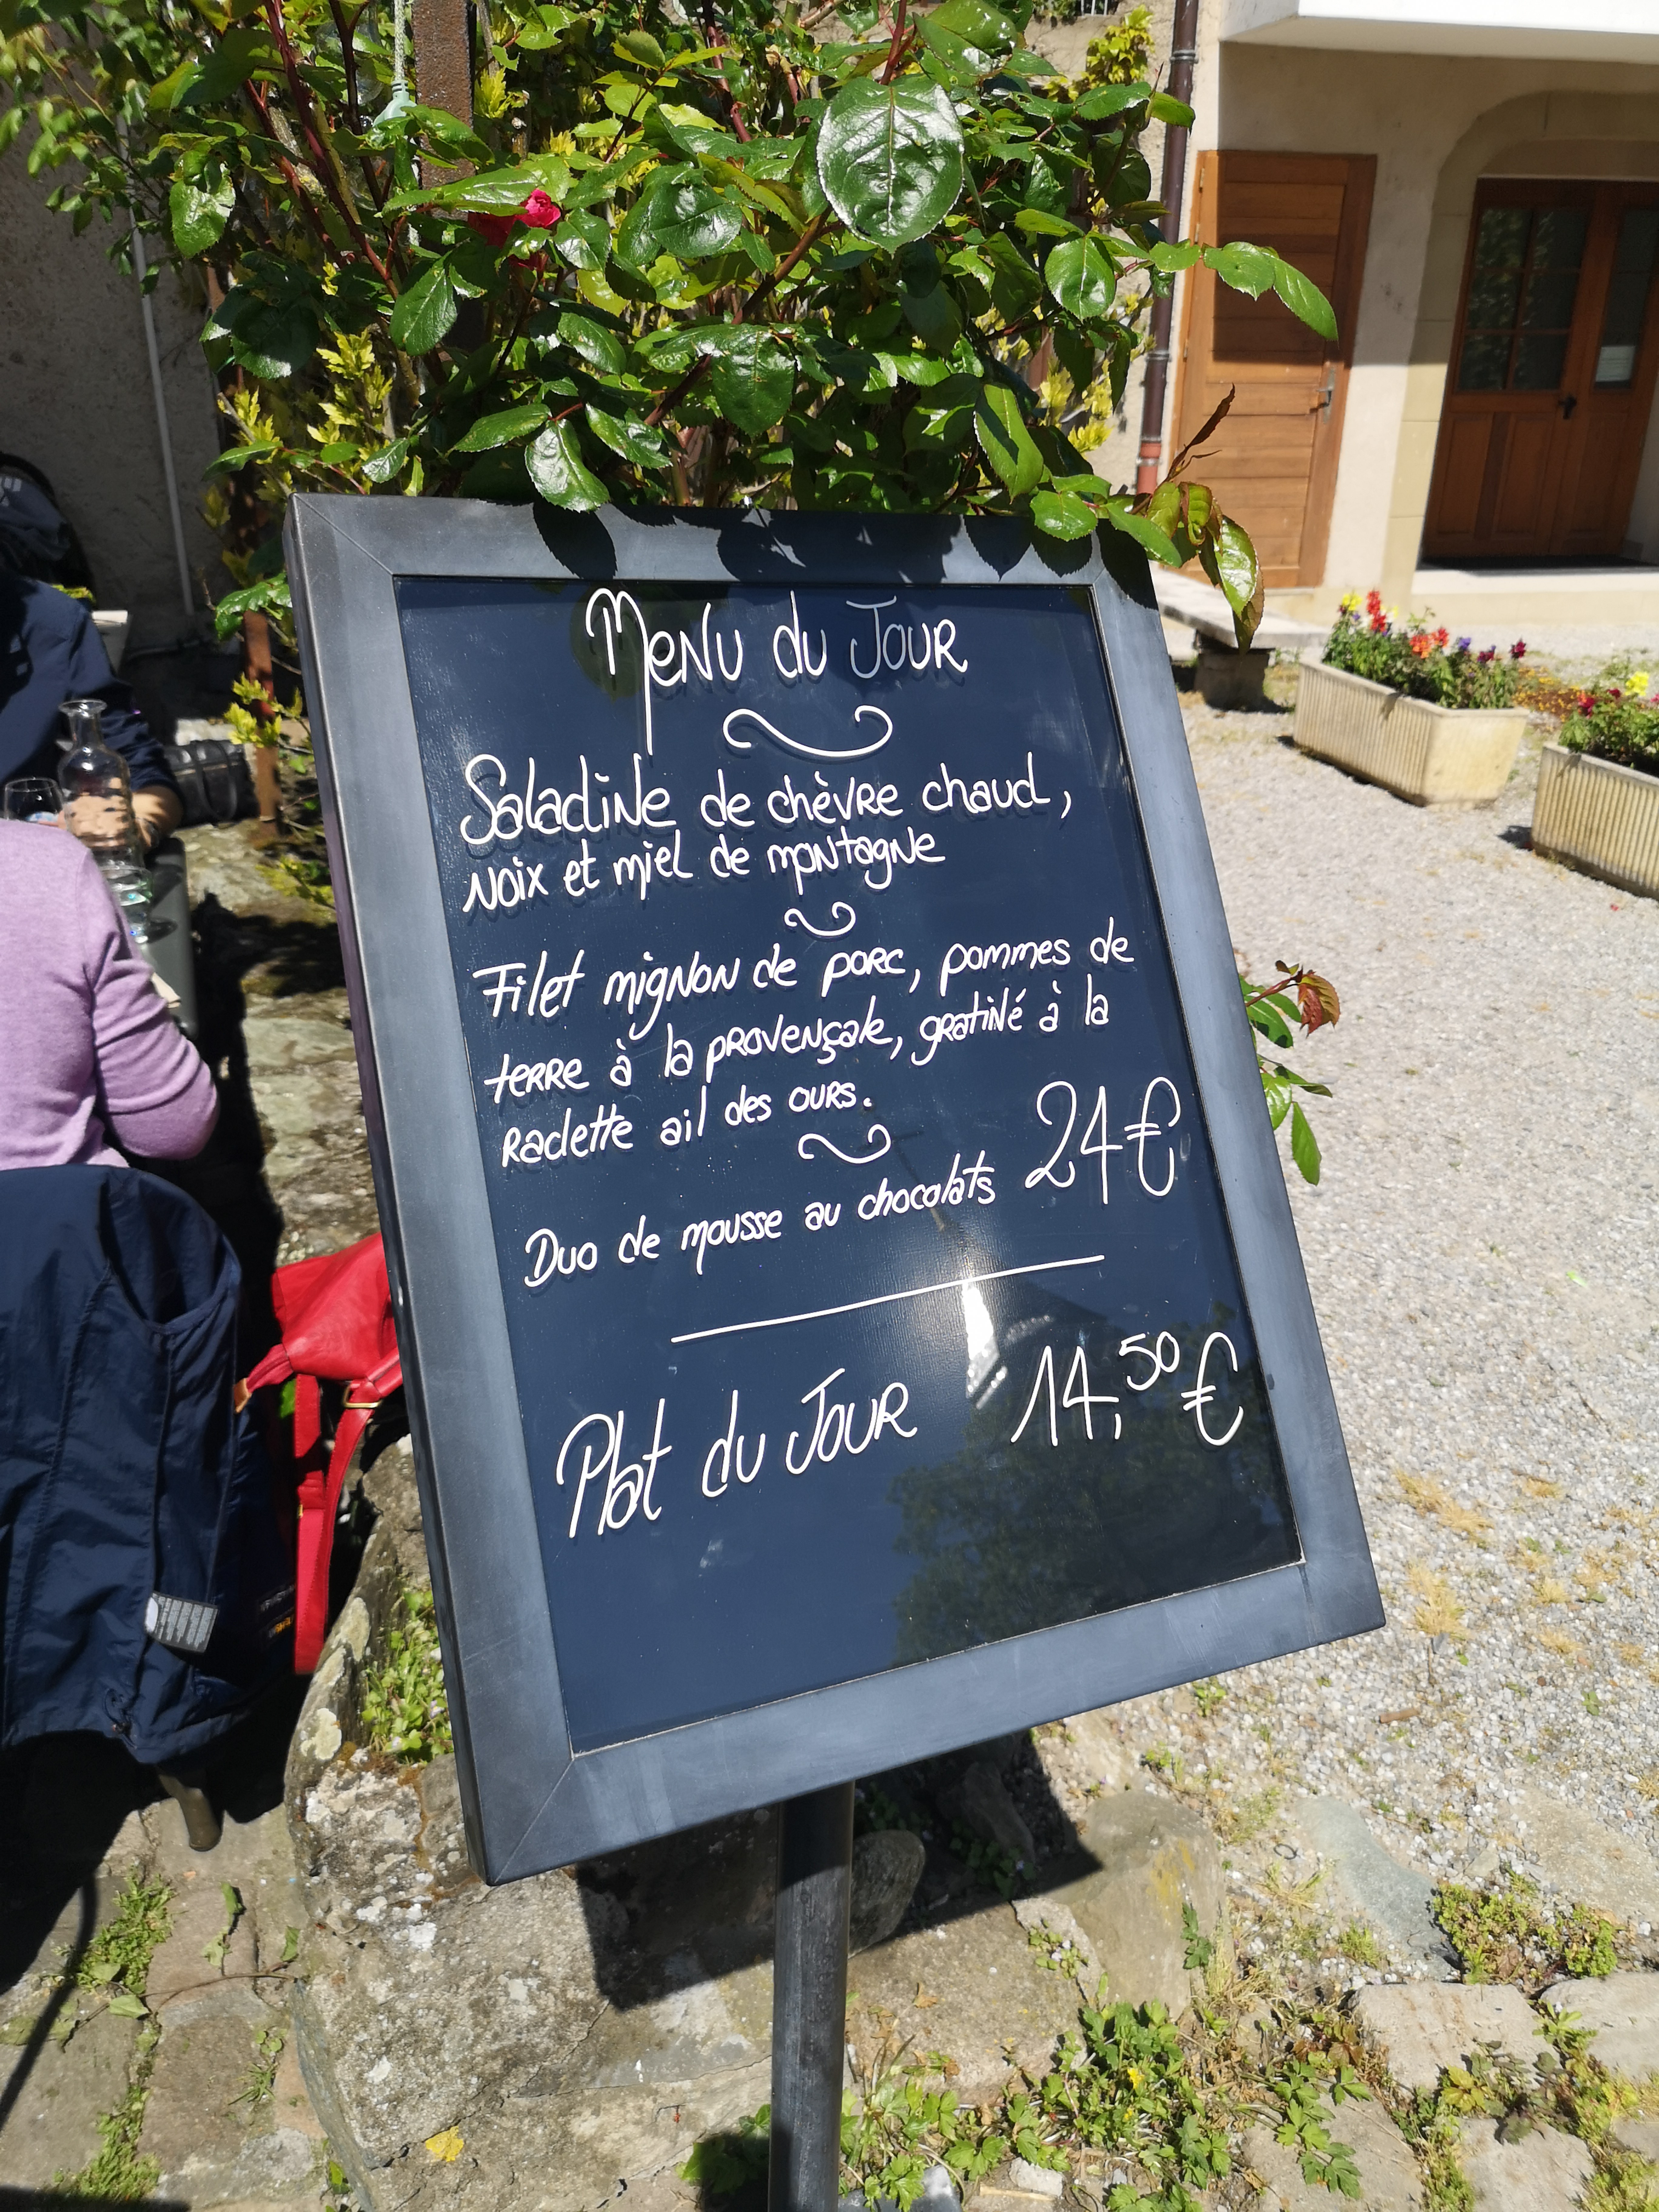 Menu du Jour
Saladine de chèvre chaud,
noix et miel de montagne
Filet mignon de porc, pommes de
terre à la provençale, gratiné à la
raclette ail des ours.
24€
Duo de mousse au chocolats
Plat du Jour 14,50 €